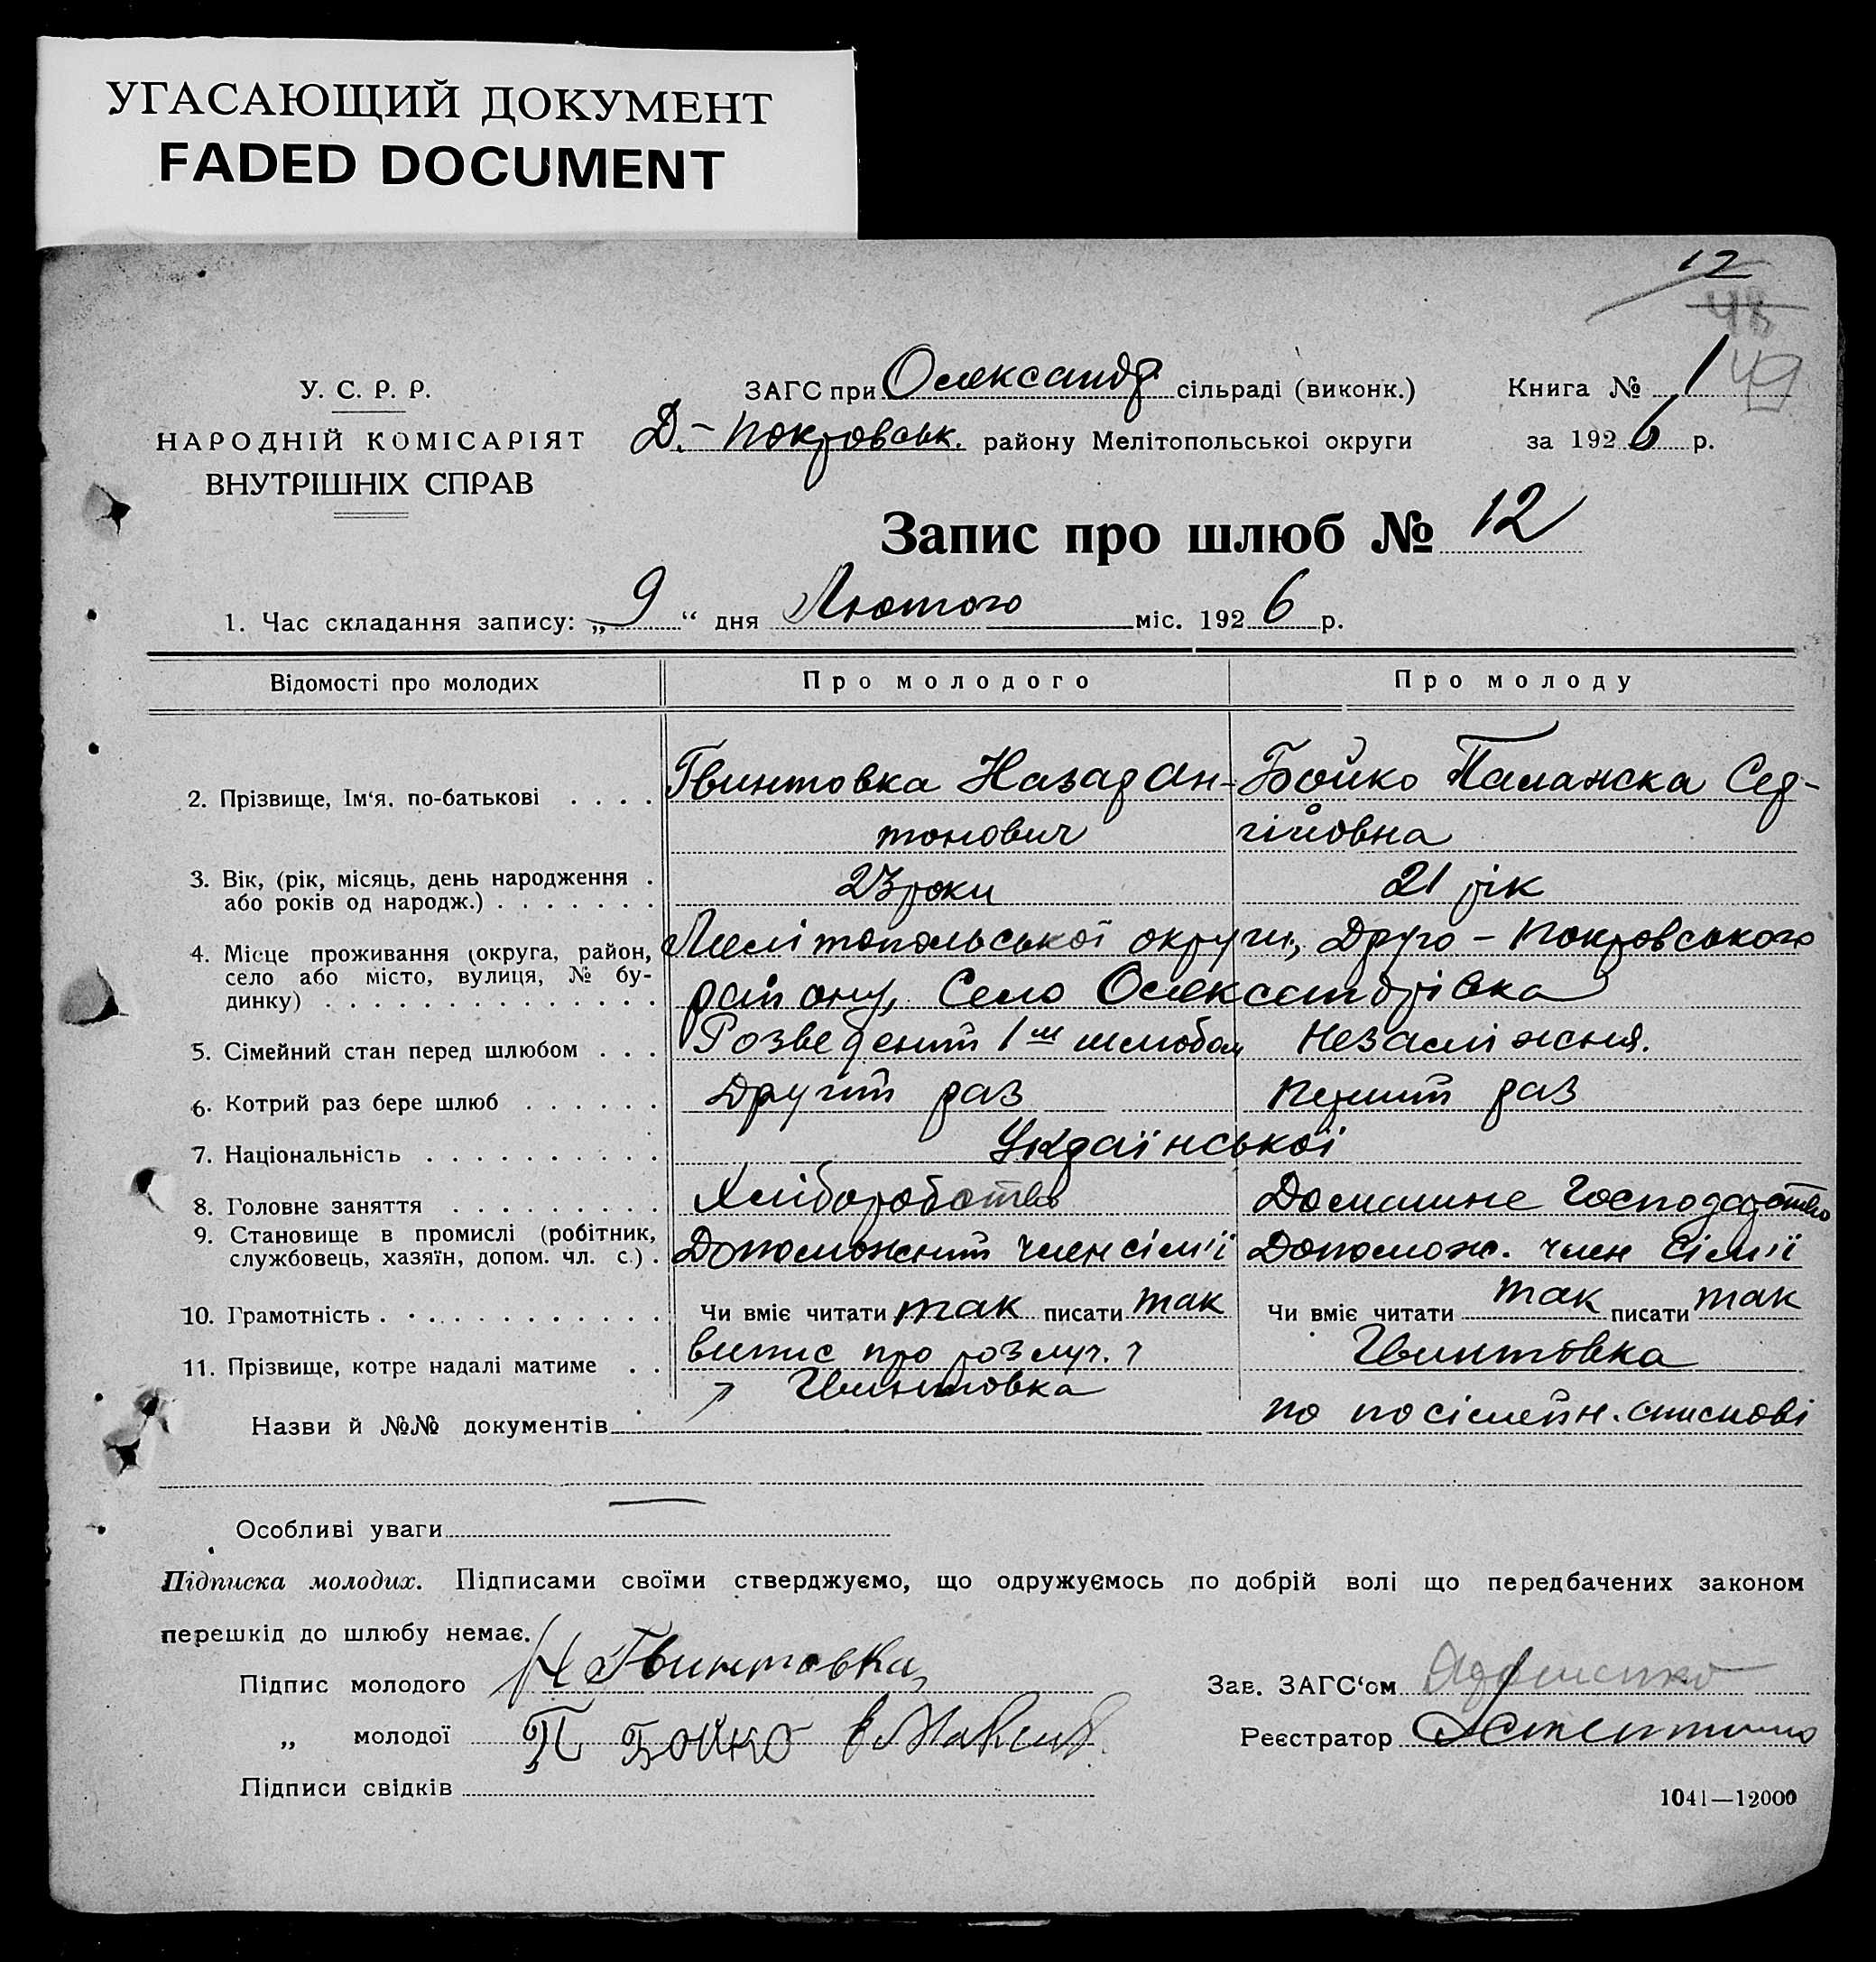 УГАСАЮЩИЙ ДОКУМЕНТ
FADED DOCUMENT
12
48
49
У. С. Р. Р.
НАРОДНІЙ КОМІСАРІЯТ
ВНУТРІШНІХ СПРАВ
ЗАГС при Олександр. сільраді (виконк.)
Д.-Покровськ. району Мелітопольської округи
Книга № 1
за 1926 р.
Запис про шлюб № 12
1. Час складання запису: „9“ дня Лютого міс. 1926 р.
Відомості про молодих Про молодого Про молоду
2. Прізвище, Ім‘я, по-батькові . . . . Гвинтовка Назар Ан- Бойко Палажска Сер-
тонович гійовна
3. Вік, (рік, місяць, день народження . 23 роки 21 рік
або років од народж.) . . . . . . .
4. Місце проживання (округа, район, Мелітопольської округи, Друго-Покровського
село або місто, вулиця, № бу-
динку) . . . . . . . . . . . . . . району, Село Олександрівка
5. Сімейний стан перед шлюбом . . . Розведений 1м шлюбом Незаміжня.
6. Котрий раз бере шлюб . . . . . . Другий раз Перший раз
7. Національність . . . . . . . . . . Української
8. Головне заняття . . . . . . . . . Хліборобство Домашне Господарство
9. Становище в промислі (робітник, Допоможний член сім'ї Допомож. член сім'ї
службовець, хазяїн, допом. чл. с.) .
10. Грамотність . . . . . . . . . . . . Чи вміє читати так писати так Чи вміє читати так писати так
11. Прізвище, котре надалі матиме . . випис про розлуч. Гвинтовка
Гвинтовка
Назви й №№ документів по посімейн. спискові
Особливі уваги
Підписка молодих. Підписами своїми стверджуємо, що одружуємось по добрій волі що передбачених законом
перешкід до шлюбу немає.
Підпис молодого Н Гвинтовка
„ молодої П Бойко
Підписи свідків
Зав. ЗАГС‘ом
Реєстратор
1041—12000